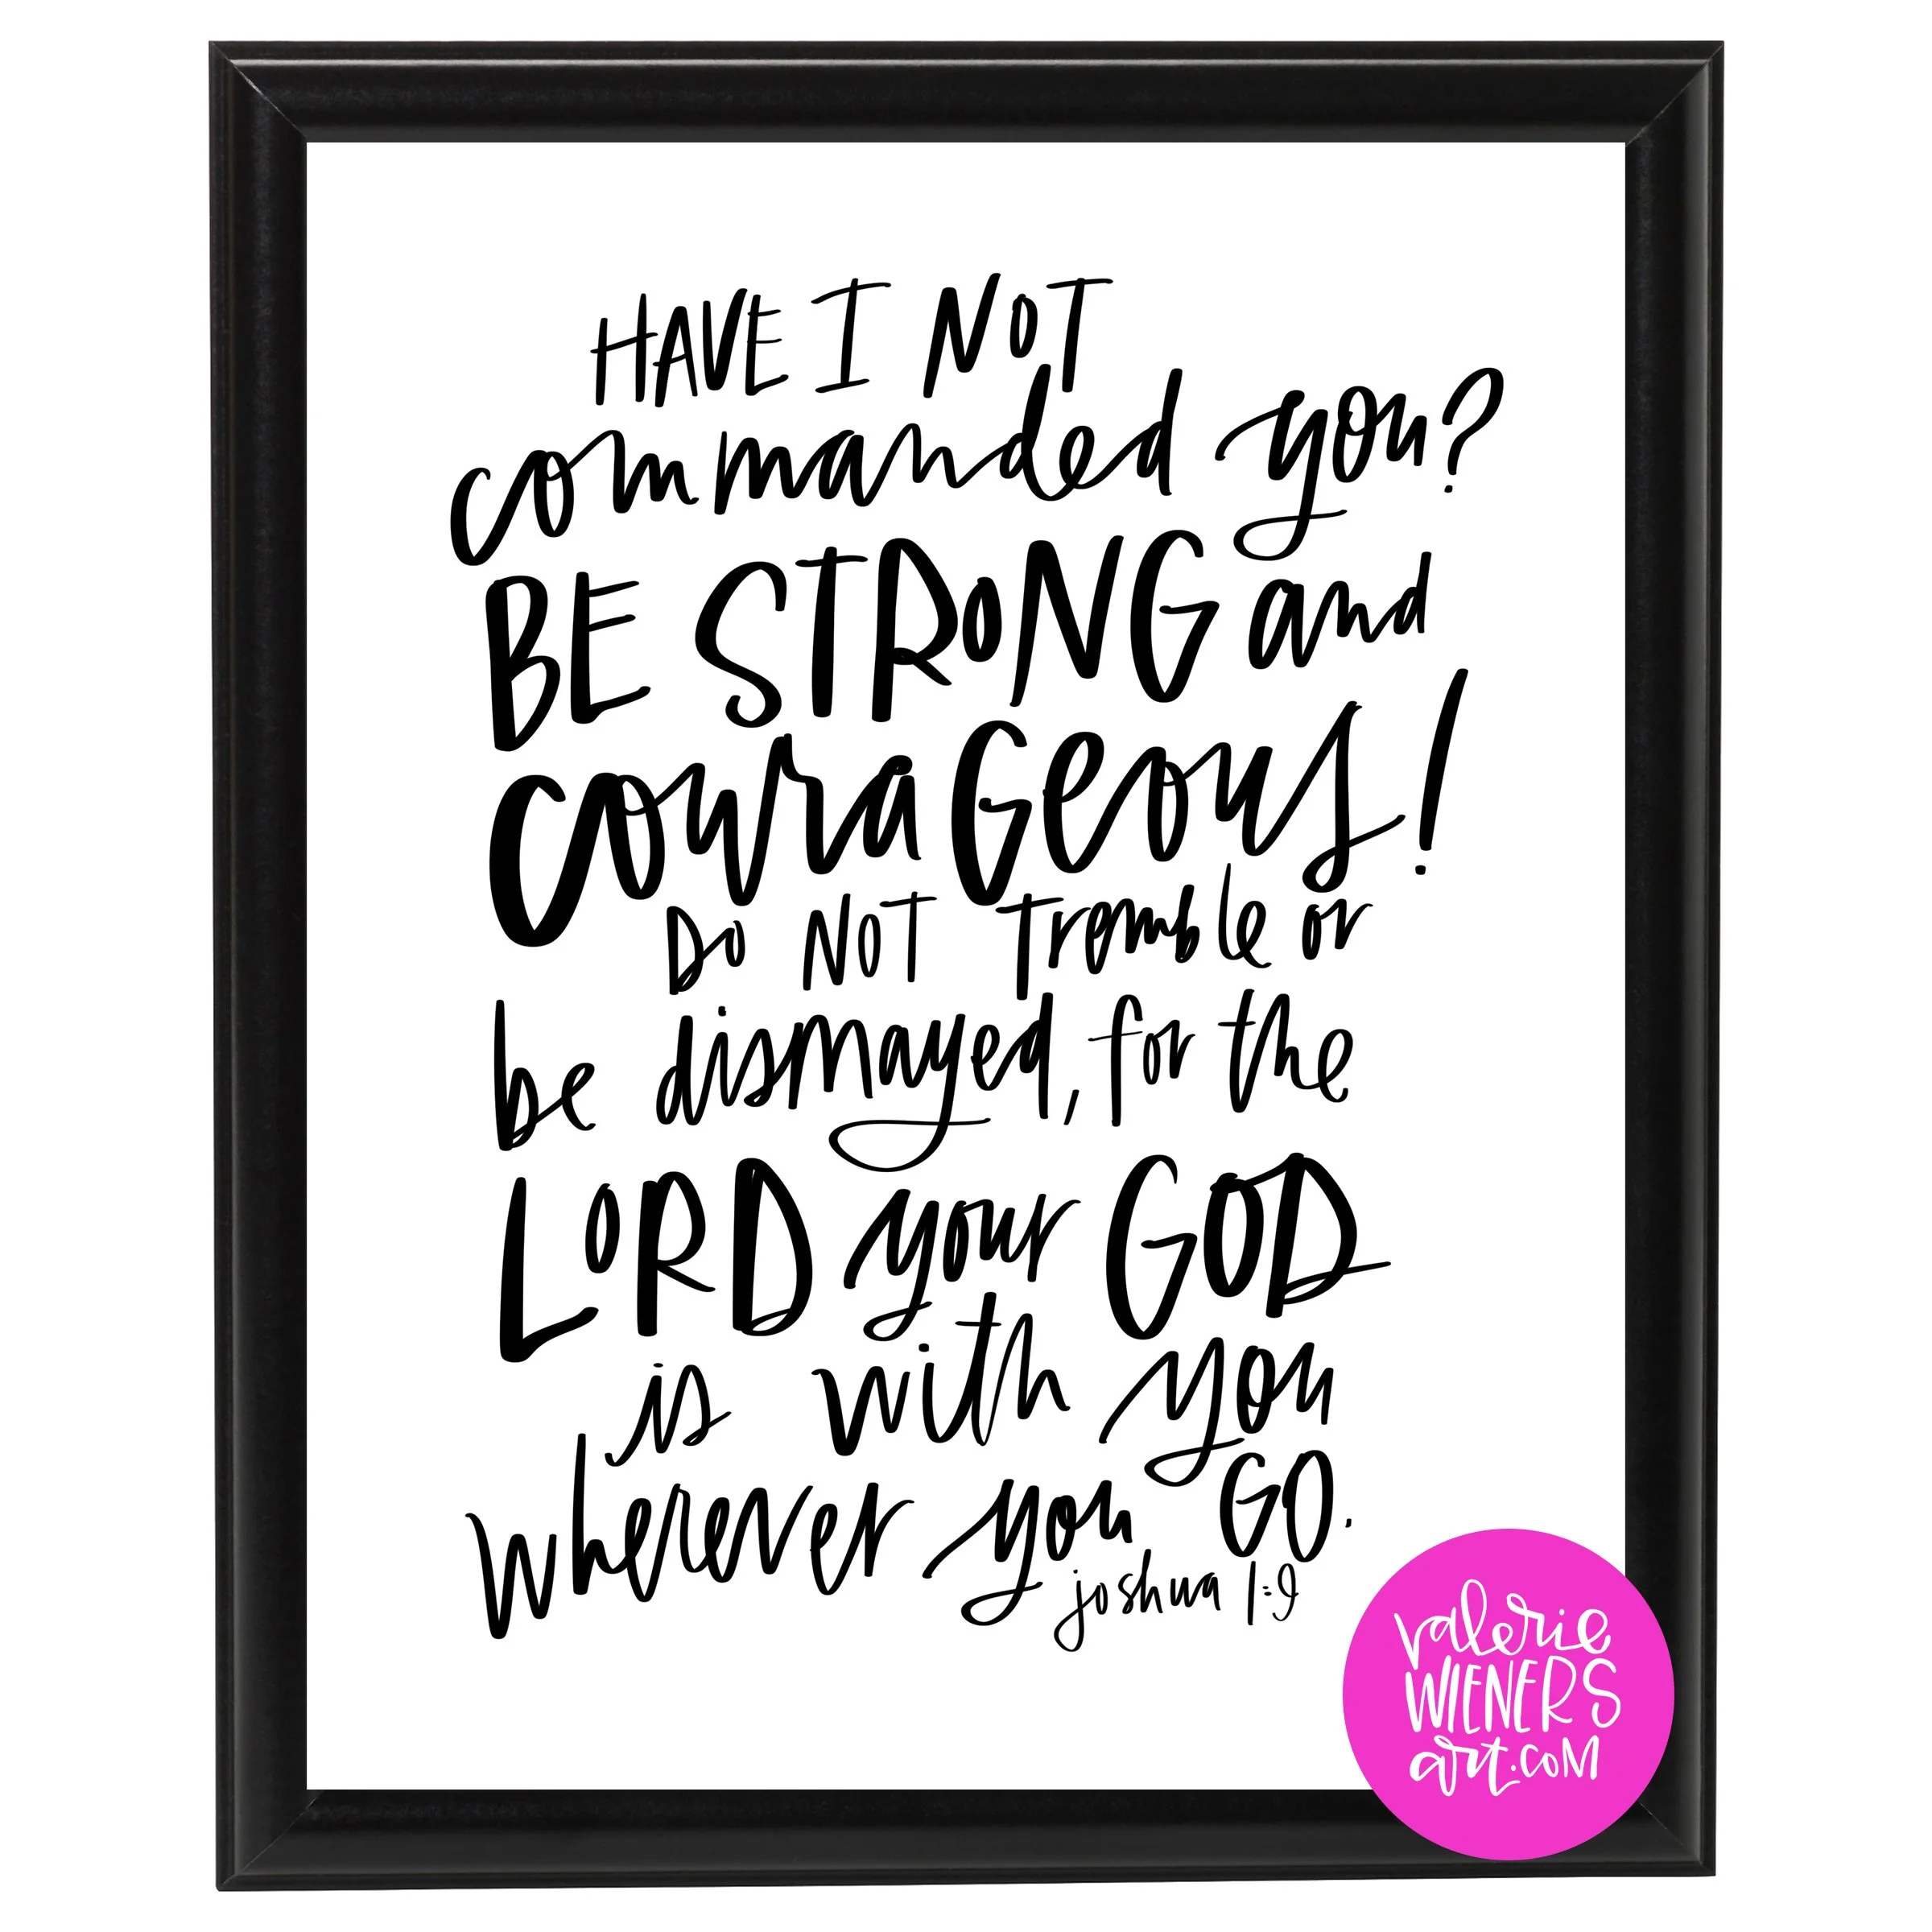 HAVE I NOT
commanded you?
BE STRONG and
couraGeous!
DO NOT tremble or
be dismayed, for the
LORD your GOD
is with you
wherever you GO.
joshua 1:9
valerie
WIENERS
art.com